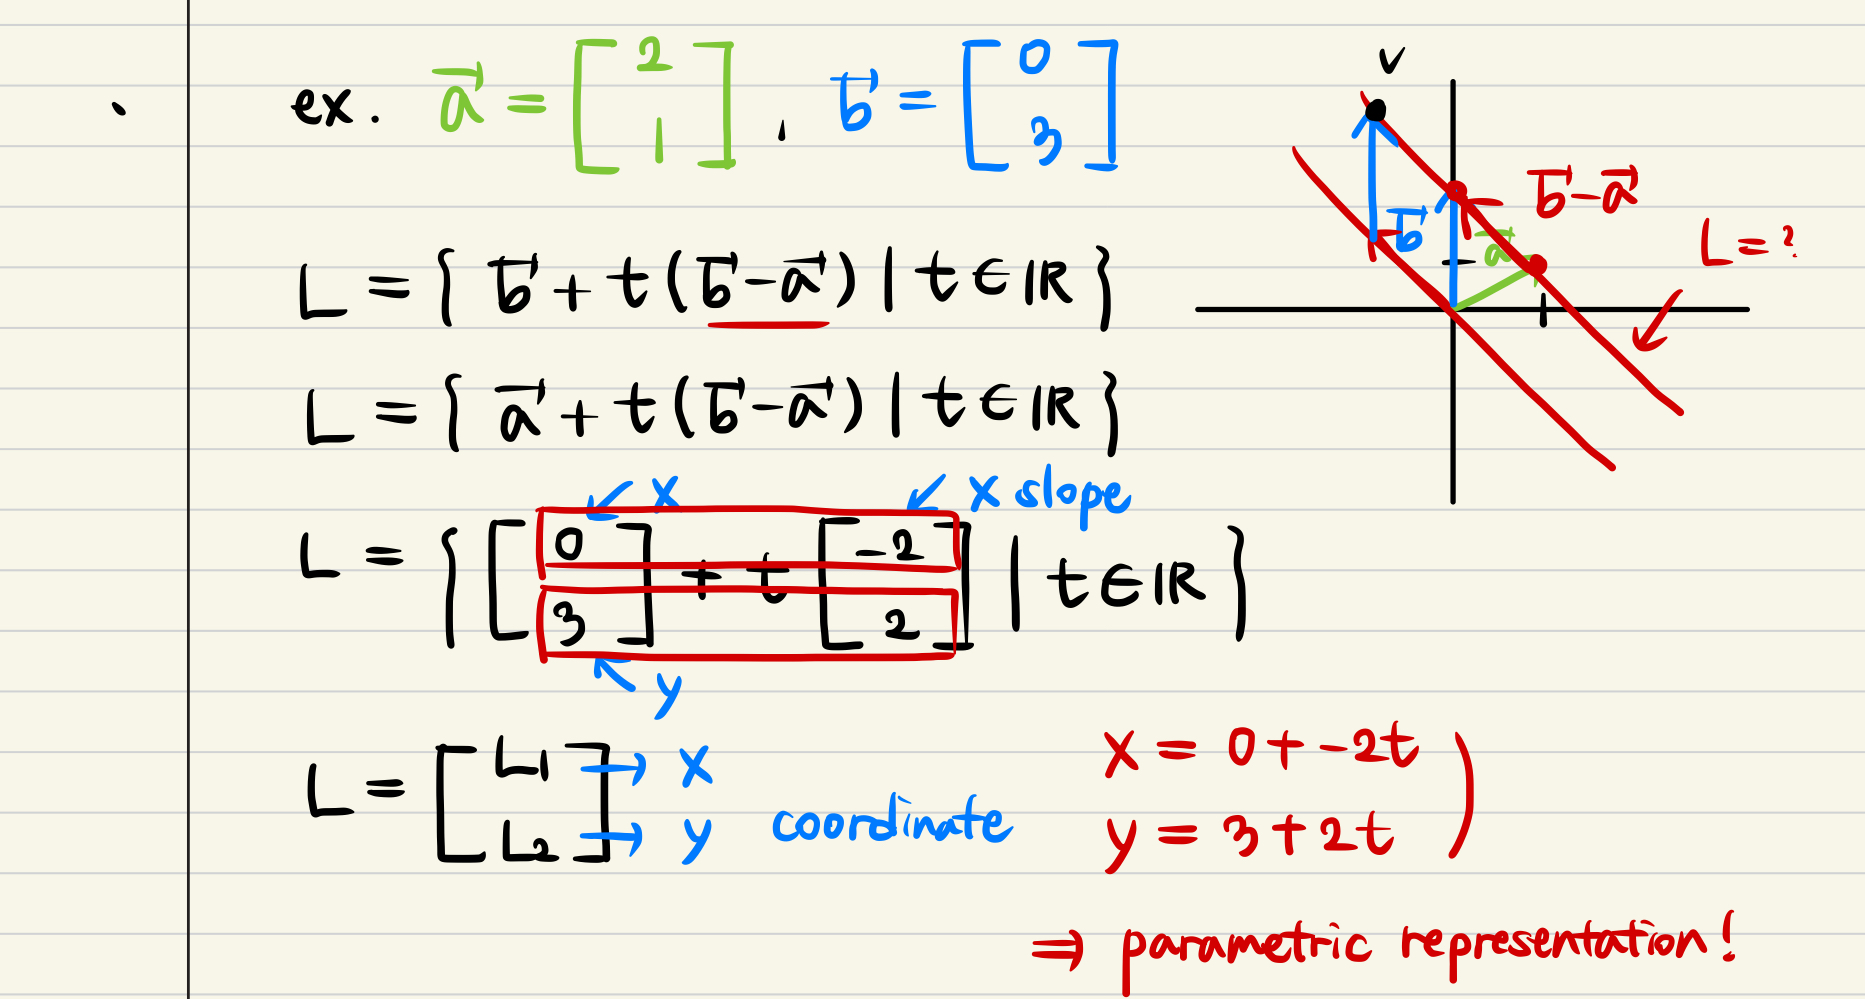 ex. a⃗ = [2 1] , b⃗ = [0 3]
V
b⃗
a⃗
b⃗-a⃗
L=?
L = { b⃗ + t(b⃗-a⃗) | t∈ℝ }
L = { a⃗ + t(b⃗-a⃗) | t∈ℝ }
x
x slope
L = { [0 3] + t [-2 2] | t∈ℝ }
y
L = [L1 L2]
→ x
→ y
coordinate
x = 0+-2t
y = 3+2t )
⇒ parametric representation!